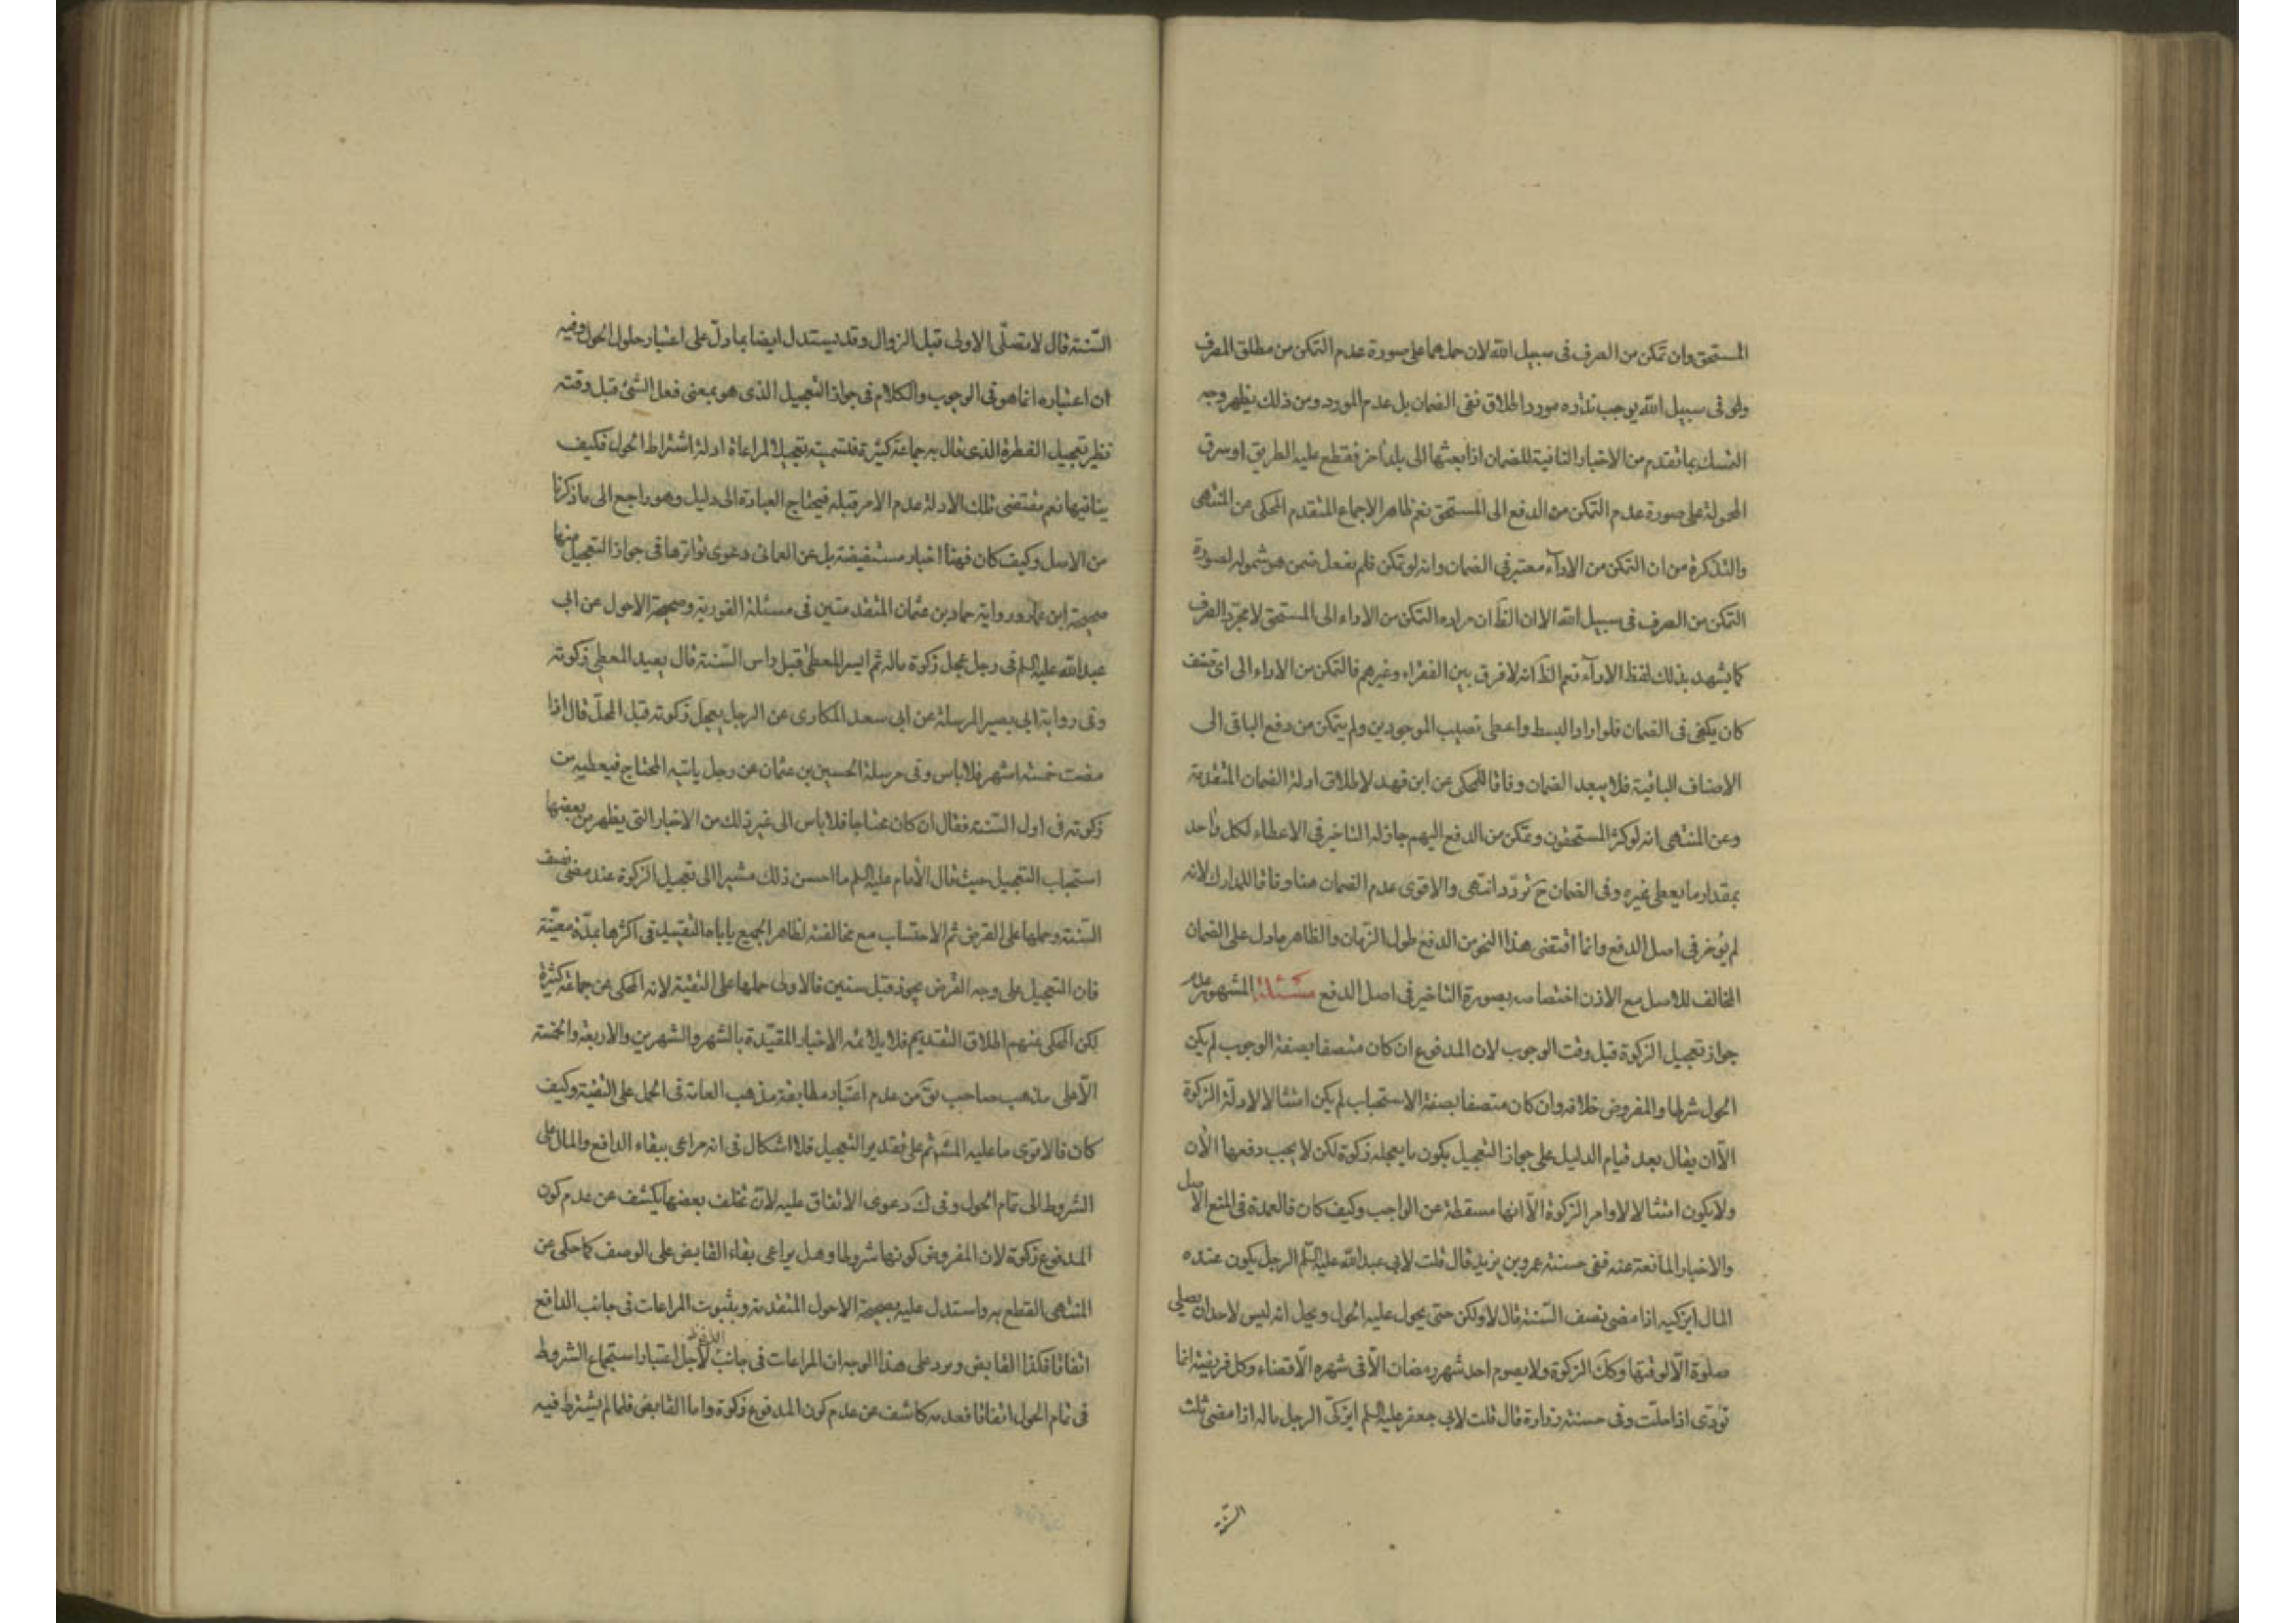 المستحق وان تمكن من الصرف فى سبيل الله لان حملهما على صورة عدم التمكن من مطلق المصرف
ولو فى سبيل الله يوجب ندره مورد اطلاق نفى الضمان بل عدم المورد ومن ذلك يظهر وجه
التمسك بما تقدم من الاخبار النافية للضمان اذا بعثها الى بلد اخر فقطع عليه الطريق او سرق
المحمولة على صورة عدم التمكن من الدفع الى المستحق نعم ظاهر الاجماع المتقدم المحكى من المنتهى
والتذكرة من ان التمكن من الاداء معتبر فى الضمان وانه لو تمكن فلم يفعل ضمن هو شموله لصورة
التمكن من الصرف فى سبيل الله الا ان الظ ان مراده التمكن من الاداء الى المستحق لا مجرد الصرف
كما يشهد بذلك لفظ الاداء نعم الظ انه لا فرق بين الفقراء وغيرهم فالتمكن من الاداء الى اى صنف
كان يكفى فى الضمان فلو اراد البسط واعطى نصيب الموجودين ولم يتمكن من دفع الباقى الى
الاصناف الباقية فلا يبعد الضمان وفاقا للمحكى عن ابن فهد لاطلاق ادلة الضمان المتقدمة
وعن المنتهى انه لو كثر المستحقون وتمكن من الدفع اليهم جاز له التاخير فى الاعطاء لكل واحد
بمقدار ما يعطى غيره وفى الضمان ح تردد انتهى والاقوى عدم الضمان هنا وفاقا للمدارك لانه
لم يؤخر فى اصل الدفع وانما اقتضى هذا النحو من الدفع طول الزمان والظاهر ما دل على الضمان
المخالف للاصل مع الاذن اختصاصه بصورة التاخير فى اصل الدفع مسئلة المشهور عدم
جواز تعجيل الزكوة قبل وقت الوجوب لان المدفوع ان كان متصفا بصفة الوجوب لم يكن
الحول شرطا والمفروض خلافه وان كان متصفا بصفة الاستحباب لم يكن امتثالا لادلة الزكوة
الا ان يقال بعد قيام الدليل على جواز التعجيل يكون ما يعجله زكوة لكن لا يجب دفعها الان
ولا يكون امتثالا لاوامر الزكوة الا انها مسقطة عن الواجب وكيف كان فالعمدة فى المنع الاصل
والاخبار المانعة عنه ففى حسنة عمر بن يزيد قال قلت لابى عبد الله عليه السلم الرجل يكون عنده
المال ايزكيه اذا مضى نصف السنة قال لا ولكن حتى يحول عليه الحول ويحل انه ليس لاحد ان يصلى
صلوة الا لوقتها وكك الزكوة ولا يصوم احد شهر رمضان الا فى شهره الا قضاء وكل فريضة انما
تؤدى اذا حلت وفى حسنة زرارة قال قلت لابى جعفر عليه السلم ايزكى الرجل ماله اذا مضى ثلث
السنة
السنة قال لا تصلى الاولى قبل الزوال وقد يستدل ايضا بما دل على اعتبار حلول الحول وفيه
ان اعتباره انما هو فى الوجوب والكلام فى جواز التعجيل الذى هو بمعنى فعل الشئ قبل وقته
نظير تعجيل الفطرة الذى قال به جماعة كثيرة فتسميته تعجيلا لمراعاة ادلة اشتراط الحول فكيف
ينافيها نعم مقتضى تلك الادلة عدم الامر قبله فيحتاج العبادة الى دليل وهو راجع الى ما ذكرنا
من الاصل وكيف كان فهنا اخبار مستفيضة بل عن العمانى دعوى تواترها فى جواز التعجيل منها
صحيحة ابن عمار ورواية حماد بن عثمان المتقدمتين فى مسئلة الفورية وصحيحة الاحول عن ابى
عبد الله عليه السلم فى رجل عجل زكوة ماله ثم ايسر المعطى قبل راس السنة قال يعيد المعطى زكوته
وفى رواية ابى بصير المرسلة عن ابى سعد المكارى عن الرجل يعجل زكوته قبل المحل قال اذا
مضت خمسة اشهر فلا باس وفى مرسلة الحسين بن عثمان عن رجل ياتيه المحتاج فيعطيه من
زكوته فى اول السنة فقال ان كان محتاجا فلا باس الى غير ذلك من الاخبار التى يظهر من بعضها
استحباب التعجيل حيث قال الامام عليه السلم ما احسن ذلك مشيرا الى تعجيل الزكوة عند مضى نصف
السنة وحملها على القرض ثم الاحتساب مع مخالفته لظاهر الجميع ياباه التقييد فى اكثرها بمدة معينة
فان التعجيل على وجه القرض يجوز قبل سنين فالاولى حملها على التقية لانه المحكى عن جماعة كثيرة
لكن المحكى منهم اطلاق التقديم فلا يلائمه الاخبار المقيدة بالشهر والشهرين والاربعة والخمسة
الا على مذهب صاحب ئق من عدم اعتبار مطابقة مذهب العامة فى الحمل على التقية وكيف
كان فالاقوى ما عليه المشهور ثم على تقدير التعجيل فلا اشكال فى انه مراعى ببقاء الدافع والمال على
الشروط الى تمام الحول وفى ك دعوى الاتفاق عليه لان تخلف بعضها يكشف عن عدم كون
المدفوع زكوة لان المفروض كونها شروطا وهل يراعى بقاء القابض على الوصف كما حكى عن
المنتهى القطع به واستدل عليه بصحيحة الاحول المتقدمة وبثبوت المراعات فى جانب الدافع
اتفاقا فكذا القابض ويرد على هذا الوجه ان المراعات فى جانب الدافع لاجل اعتبار استجماع الشروط
فى تمام الحول اتفاقا فعدمه كاشف عن عدم كون المدفوع زكوة واما القابض فلما لم يشترط فيه